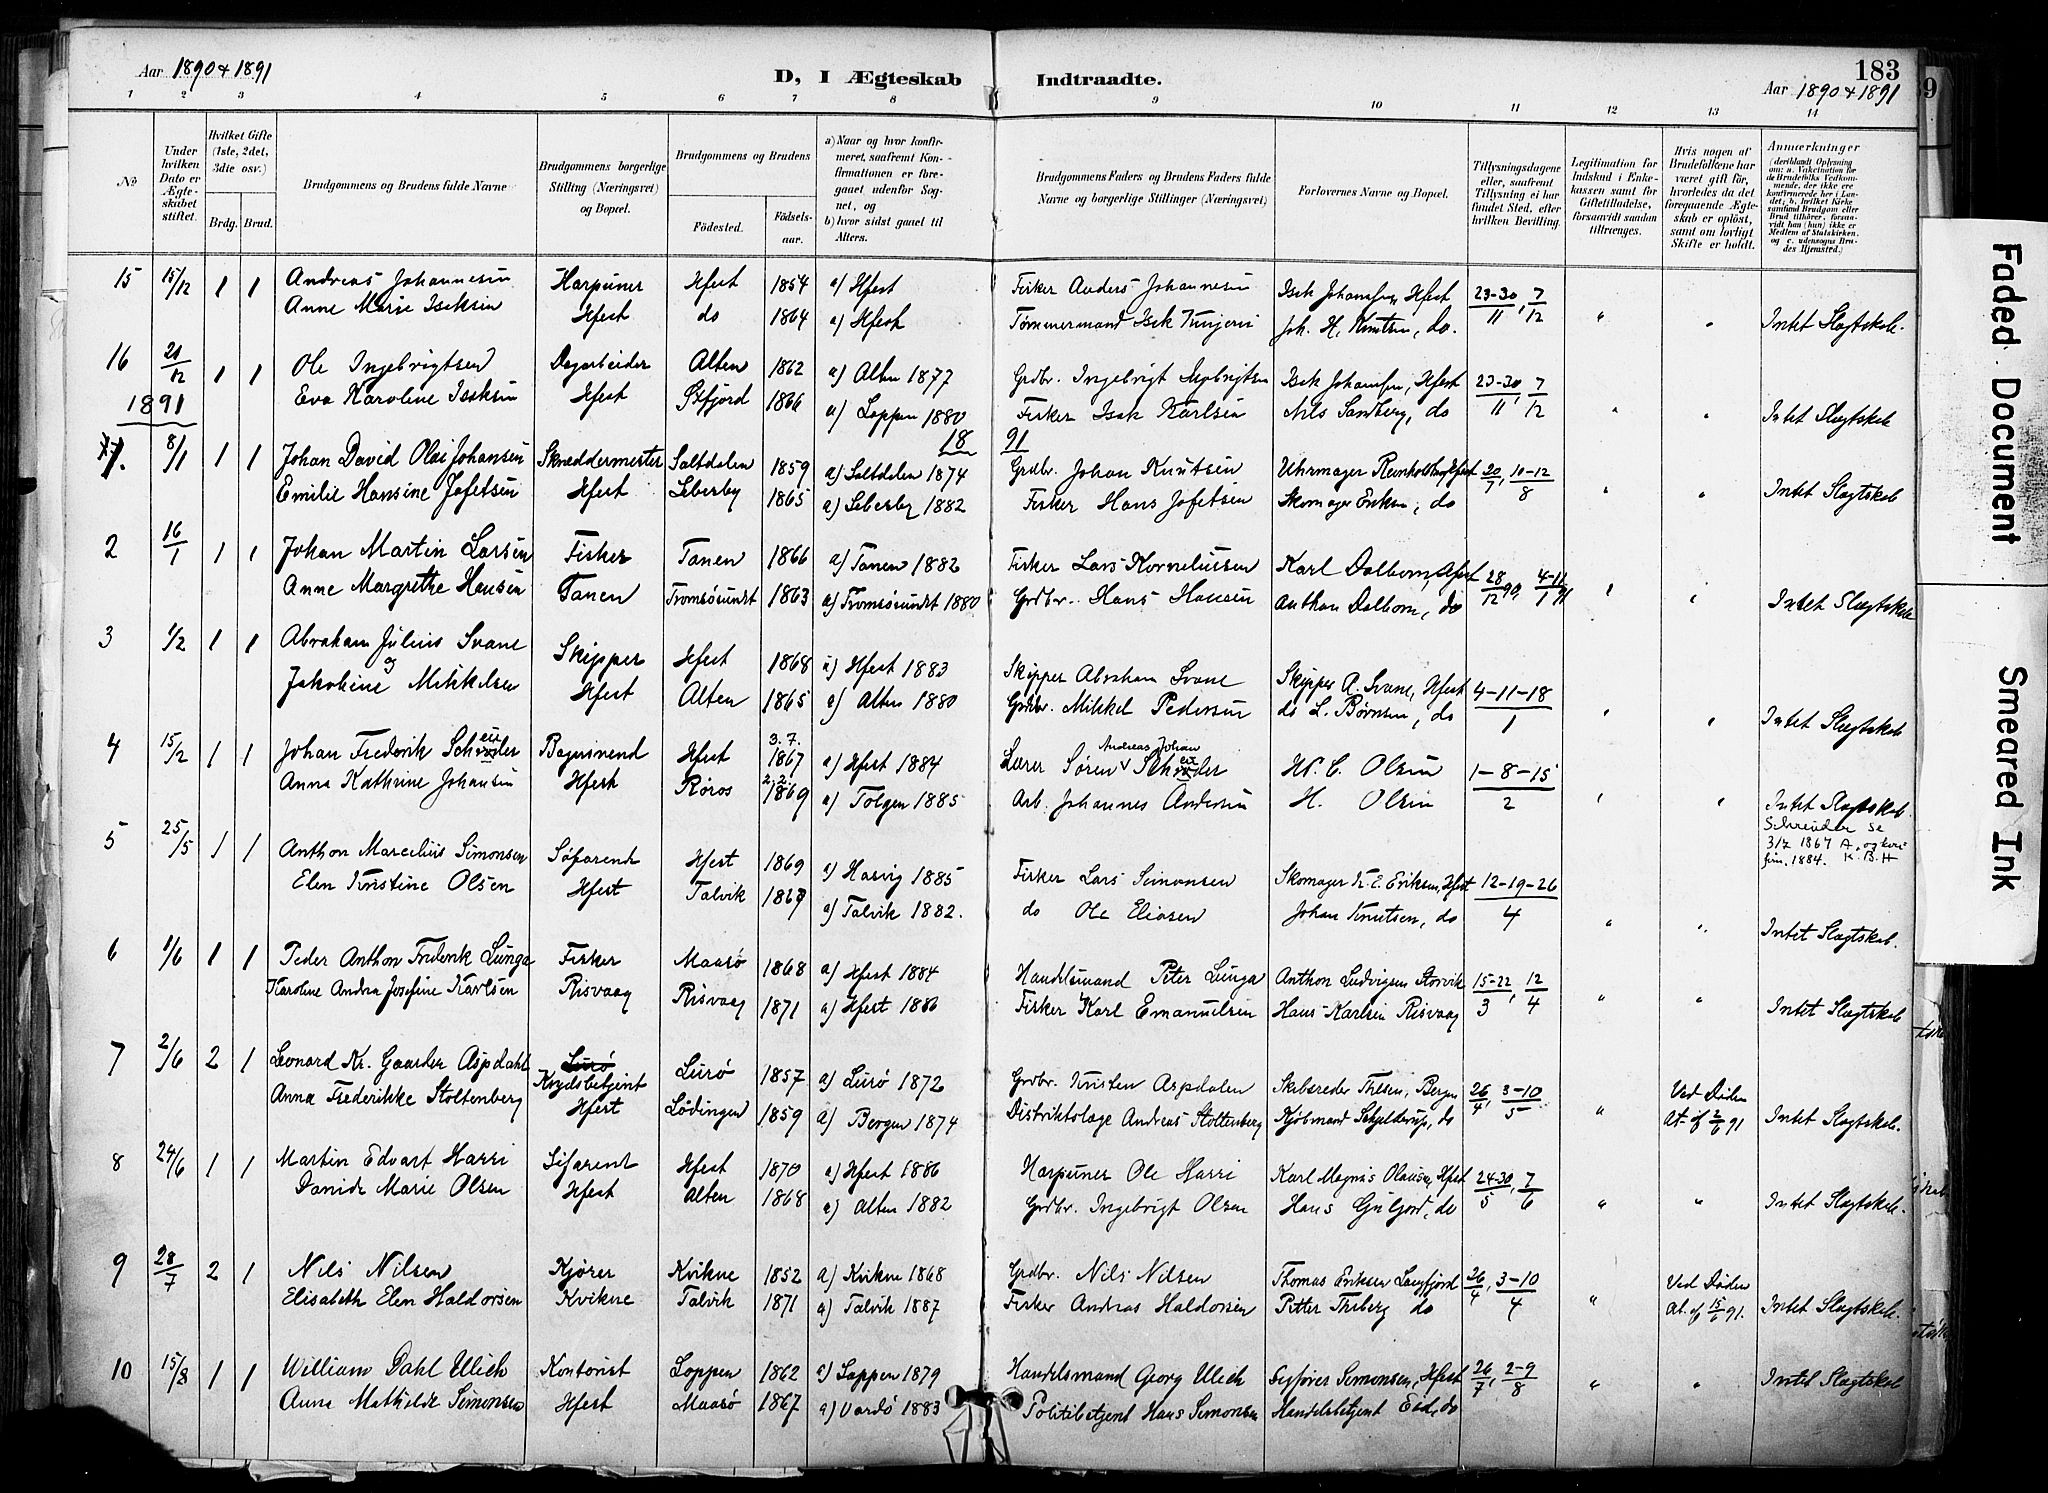 Aar 1890 & 1891
D, I Ægteskab Indtraadte.
183
Aar 1890 & 1891
1 2 3 4 5 6 7 8 9 10 11 12 13 14
No
Under hvilken Dato er Ægteskabet stiftet.
Hvilket Gifte (1ste, 2det, 3die osv.)
Brdg. Brud.
Brudgommens og Brudens fulde Navne
Brudgommens borgerlige Stilling (Næringsvei) og Bopæl.
Brudgommens og Brudens
Födested.
Födselsaar.
a) Naar og hvor konfirmeret, saafremt Konfirmationen er foregaaet udenfor Sognet, og
b) hvor sidst gaaet til Alters.
Brudgommens Faders og Brudens Faders fulde Navne og borgerlige Stillinger (Næringsvei)
Forlovernes Navne og Bopæl.
Tillysningsdagene eller, saafremt Tillysning ei har fundet Sted, efter hvilken Bevilling.
Legitimation for Indskud i Enkekassen samt for Giftetilladelse, forsaavidt saadan tiltrænges.
Hvis nogen af Brudefolkene har været gift för, hvorledes da det foregaaende Ægteskab er oplöst, samt om lovligt Skifte er holdt.
Anmærkninger
15 15/12 1 1 Andreas Johannesen Harpuner Hfest 1854 a) Hfest Fisker Anders Johannesen Isak Johansen, Hfest 23-30/11, 7/12 " " Intet Slægtskab.
Anne Marie Iseksen Hfest do 1864 a) Hfest Tømmermand Isek Joh. H. Knutsen, do.
16 21/12 1 1 Ole Ingebrigtsen Dagarbeider Alten 1862 a) Alten 1877 Grdbr. Ingebrigt Ingebrigtsen Isak Johansen, Hfest 23-30/11, 7/12 " " Intet Slægtskab
Eva Karoline Iseksen Hfest Øxfjord 1866 a) Loppen 1880 Fisker Isak Karlsen Nils Sandberg, do
1891
1891
1. 8/1 1 1 Johan David Olai Johansen Skræddermester Saltdalen 1859 a) Saltdalen 1874 Grdbr. Johan Knutsen Uhrmager Hfest 20/7, 10-12/8 " " Intet Slægtskab
Emilie Hansine Jofetsen Hfest Leberby 1865 a) Leberby 1882 Fisker Hans Jofetsen Skomager Eriksen, do
2 16/1 1 1 Johan Martin Larsen Fisker Tanen 1866 a) Tanen 1882 Fisker Lars Korneliussen Karl Dalbom, Hfest 28/12 90, 4-11/1 91 " " Intet Slægtskab
Anne Margrethe Hansen Tanen Tromsøsundet 1863 a) Tromsøsundet 1880 Grdbr. Hans Hansen Anthon Dalbom, do
3 1/2 1 1 Abraham Julius Svane Skipper Hfest 1868 a) Hfest 1883 Skipper Abraham Svane Skipper A. Svane, Hfest 4-11-18/1 " " Intet Slægtskab
og
Jakobine Mikkelsen Hfest Alten 1865 a) Alten 1880 Grdbr. Mikkel Pedersen do L. Børnsen, do
4 15/2 1 1 Johan Frederik Schreuder Bagersvend Hfest 3.7. 1867 a) Hfest 1884 Lærer Søren Andreas Johan Schreuder W. C. Olsen 1-8-15/2 " " Intet Slægtskab.
Anna Kathrine Johansen Hfest Røros 2.2. 1869 a) Tolgen 1885 Arb. Johannes Andersen H. Olsen
Schreuder se 3/7 1867 A, og konfirm. 1884. K.B.H
5 25/5 1 1 Anthon Marcelius Simonsen Søfarende Hfest 1869 a) Hasvig 1885 Fisker Lars Simonsen Skomager K. E. Eriksen, Hfest 12-19-26/4 " " Intet Slægtskab.
Elen Kristine Olsen Hfest Talvik 1867 a) Talvik 1882. do Ole Eliasen Johan Knutsen, do
6 1/6 1 1 Peder Anthon Frederik Lunga Fisker Maasø 1868 a) Hfest 1884 Handelsmand Peter Lunga Anthon Ludvigsen Storvik 15-22/3, 12/4 " " Intet Slægtskab
Karoline Andrea Josefine Karlsen Risvaag Risvaag 1871 a) Hfest 1886 Fisker Karl Emanuelsen Hans Karlsen Risvaag
7 2/6 2 1 Leonard Kr. Gaarder Aspdahl Lurø Krydsbetjent Lurø 1857 a) Lurø 1872 Grdbr. Kristen Aspdalen Skibsreder Thesen, Bergen 26/4, 3-10/5 " Ved Døden At. af 2/6 91 Intet Slægtskab.
Anna Frederikke Stoltenberg Hfest Lødingen 1859 a) Bergen 1874 Distriktslæge Andreas Stoltenberg Kjøbmand Schjelderup, do
8 24/6 1 1 Martin Edvart Harri Søfarende Hfest 1870 a) Hfest 1886 Harpuner Ole Harri Karl Magnus Olausen, Hfest 24-30/5, 7/6 " " Intet Slægtskab.
Marie Olsen Hfest Alten 1868 a) Alten 1882 Grdbr. Ingebrigt Olsen Hans Guljord, do
9 28/7 2 1 Nils Nilsen Kjører Kvikne 1852 a) Kvikne 1868 Grdbr. Nils Nilsen Thomas Eriksen Langfjord 26/4, 3-10/4 " Ved Døden At. af 15/6 91. Intet Slægtskab.
Elisabeth Elen Haldorsen Kvikne Talvik 1871 a) Talvik 1887 Fisker Andreas Haldorsen Petter Friberg do
10 15/8 1 1 William Dahl Ulich Kontorist Loppen 1862 a) Loppen 1879 Handelsmand Georg Ulich Simonsen, Hfest 26/7, 2-9/8 " " Intet Slægtskab
Anna Mathilde Simonsen Hfest Maasø 1867 a) Vardø 1883 Politibetjent Hans Simonsen Handelsbetjent Eid, do
Faded Document
Smeared Ink